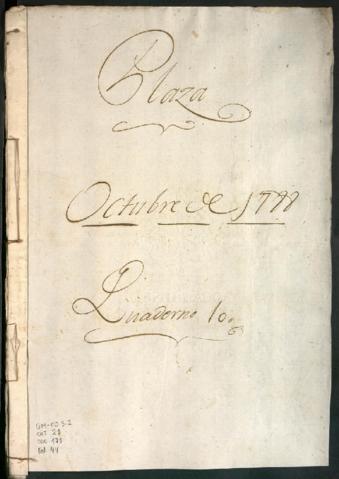 Plaza
Octubre de 1788
Quaderno 10.
GM-CO 3-2
CAT 28
DOC 171
fol 44